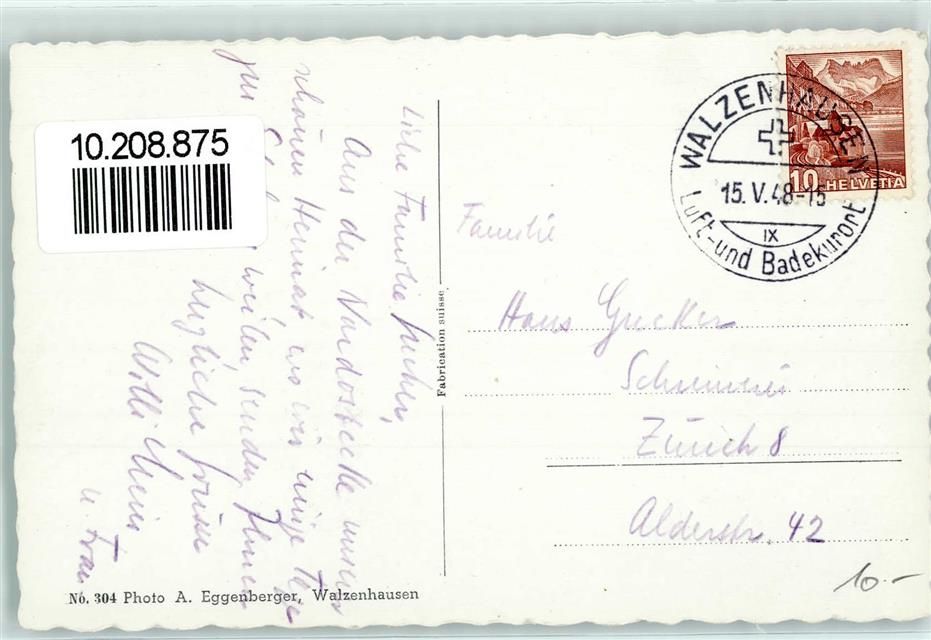 10.208.875
Liebe Familie Gucker,
Aus der Nordostecke unserer
schönen Heimat wo wir einige Tage
zur weilen senden Ihnen
herzliche Grüsse
Willi
u. Frau
Fabrication suisse
No. 304 Photo A. Eggenberger, Walzenhausen
WALZENHAUSEN
15. V. 48-15
IX
Luft- und Badekurort
10 HELVETIA
Familie
Hans Gucker
Schreinerei
Zürich 8
Alderstr. 42
10.-